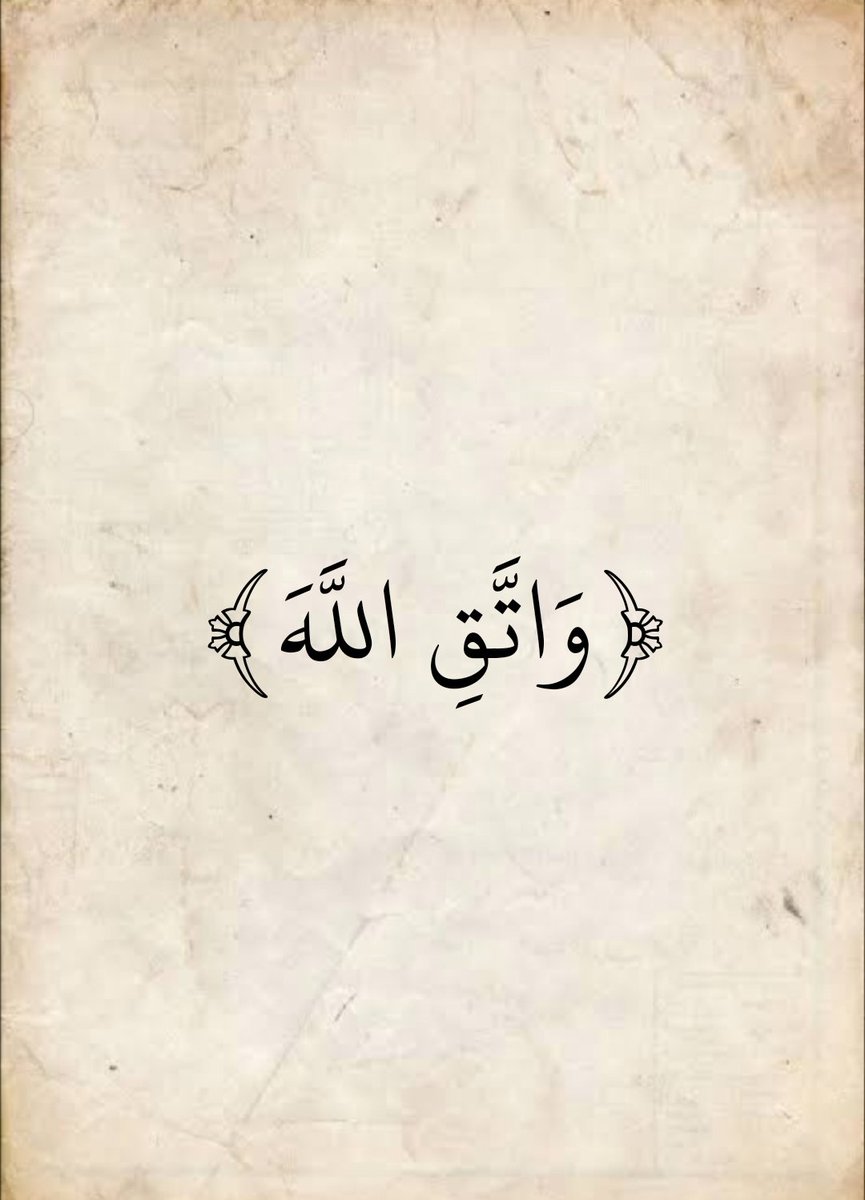 ﴿وَاتَّقِ اللَّهَ﴾